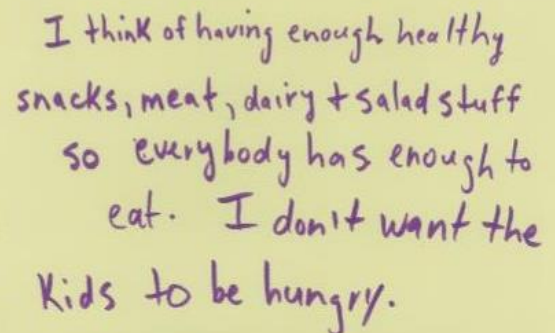 I think of having enough healthy
snacks, meat, dairy + salad stuff
so everybody has enough to
eat. I don't want the
kids to be hungry.